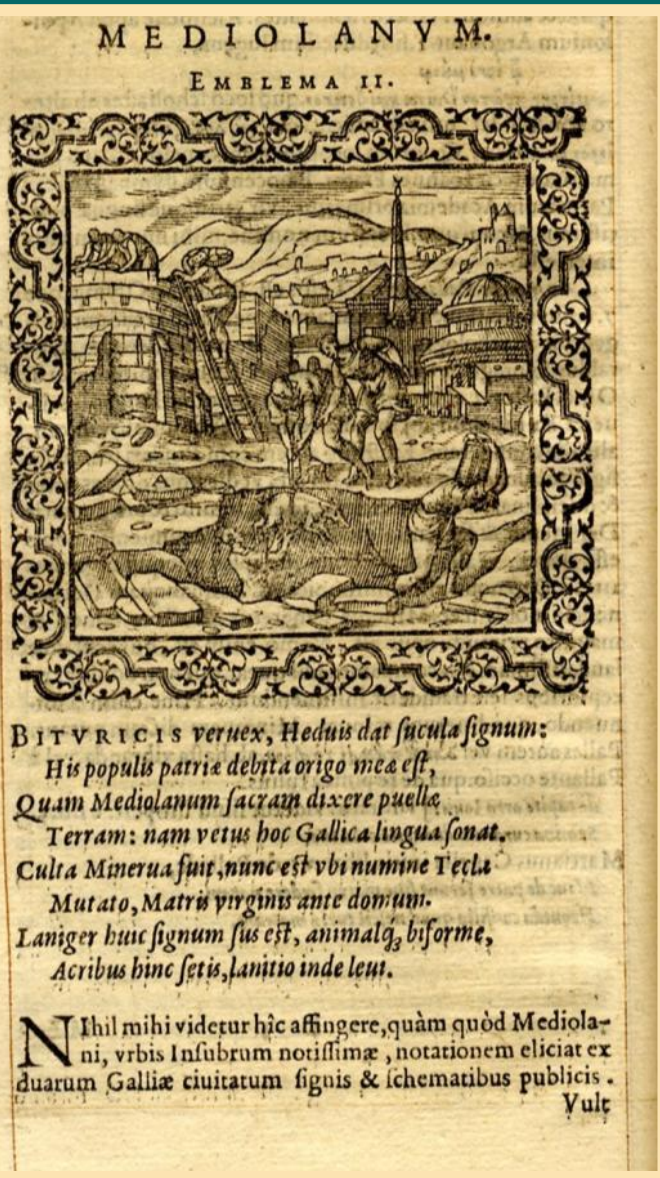 MEDIOLANVM.
EMBLEMA II.
A
BITVRICIS veruex, Heduis dat ſucula ſignum:
His populis patriæ debita origo mea eſt,
Quam Mediolanum ſacram dixere puellæ
Terram: nam vetus hoc Gallica lingua ſonat.
Culta Minerua fuit, nunc eſt vbi numine Tecla
Mutato, Matris virginis ante domum.
Laniger huic ſignum ſus eſt, animalq́ꝫ biforme,
Acribus hinc ſetis, lanitio inde leui.
NIhil mihi videtur hîc affingere, quàm quòd Mediola-
ni, vrbis Inſubrum notiſſimæ, notationem eliciat ex
duarum Galliæ ciuitatum ſignis & ſchematibus publicis.
Vult